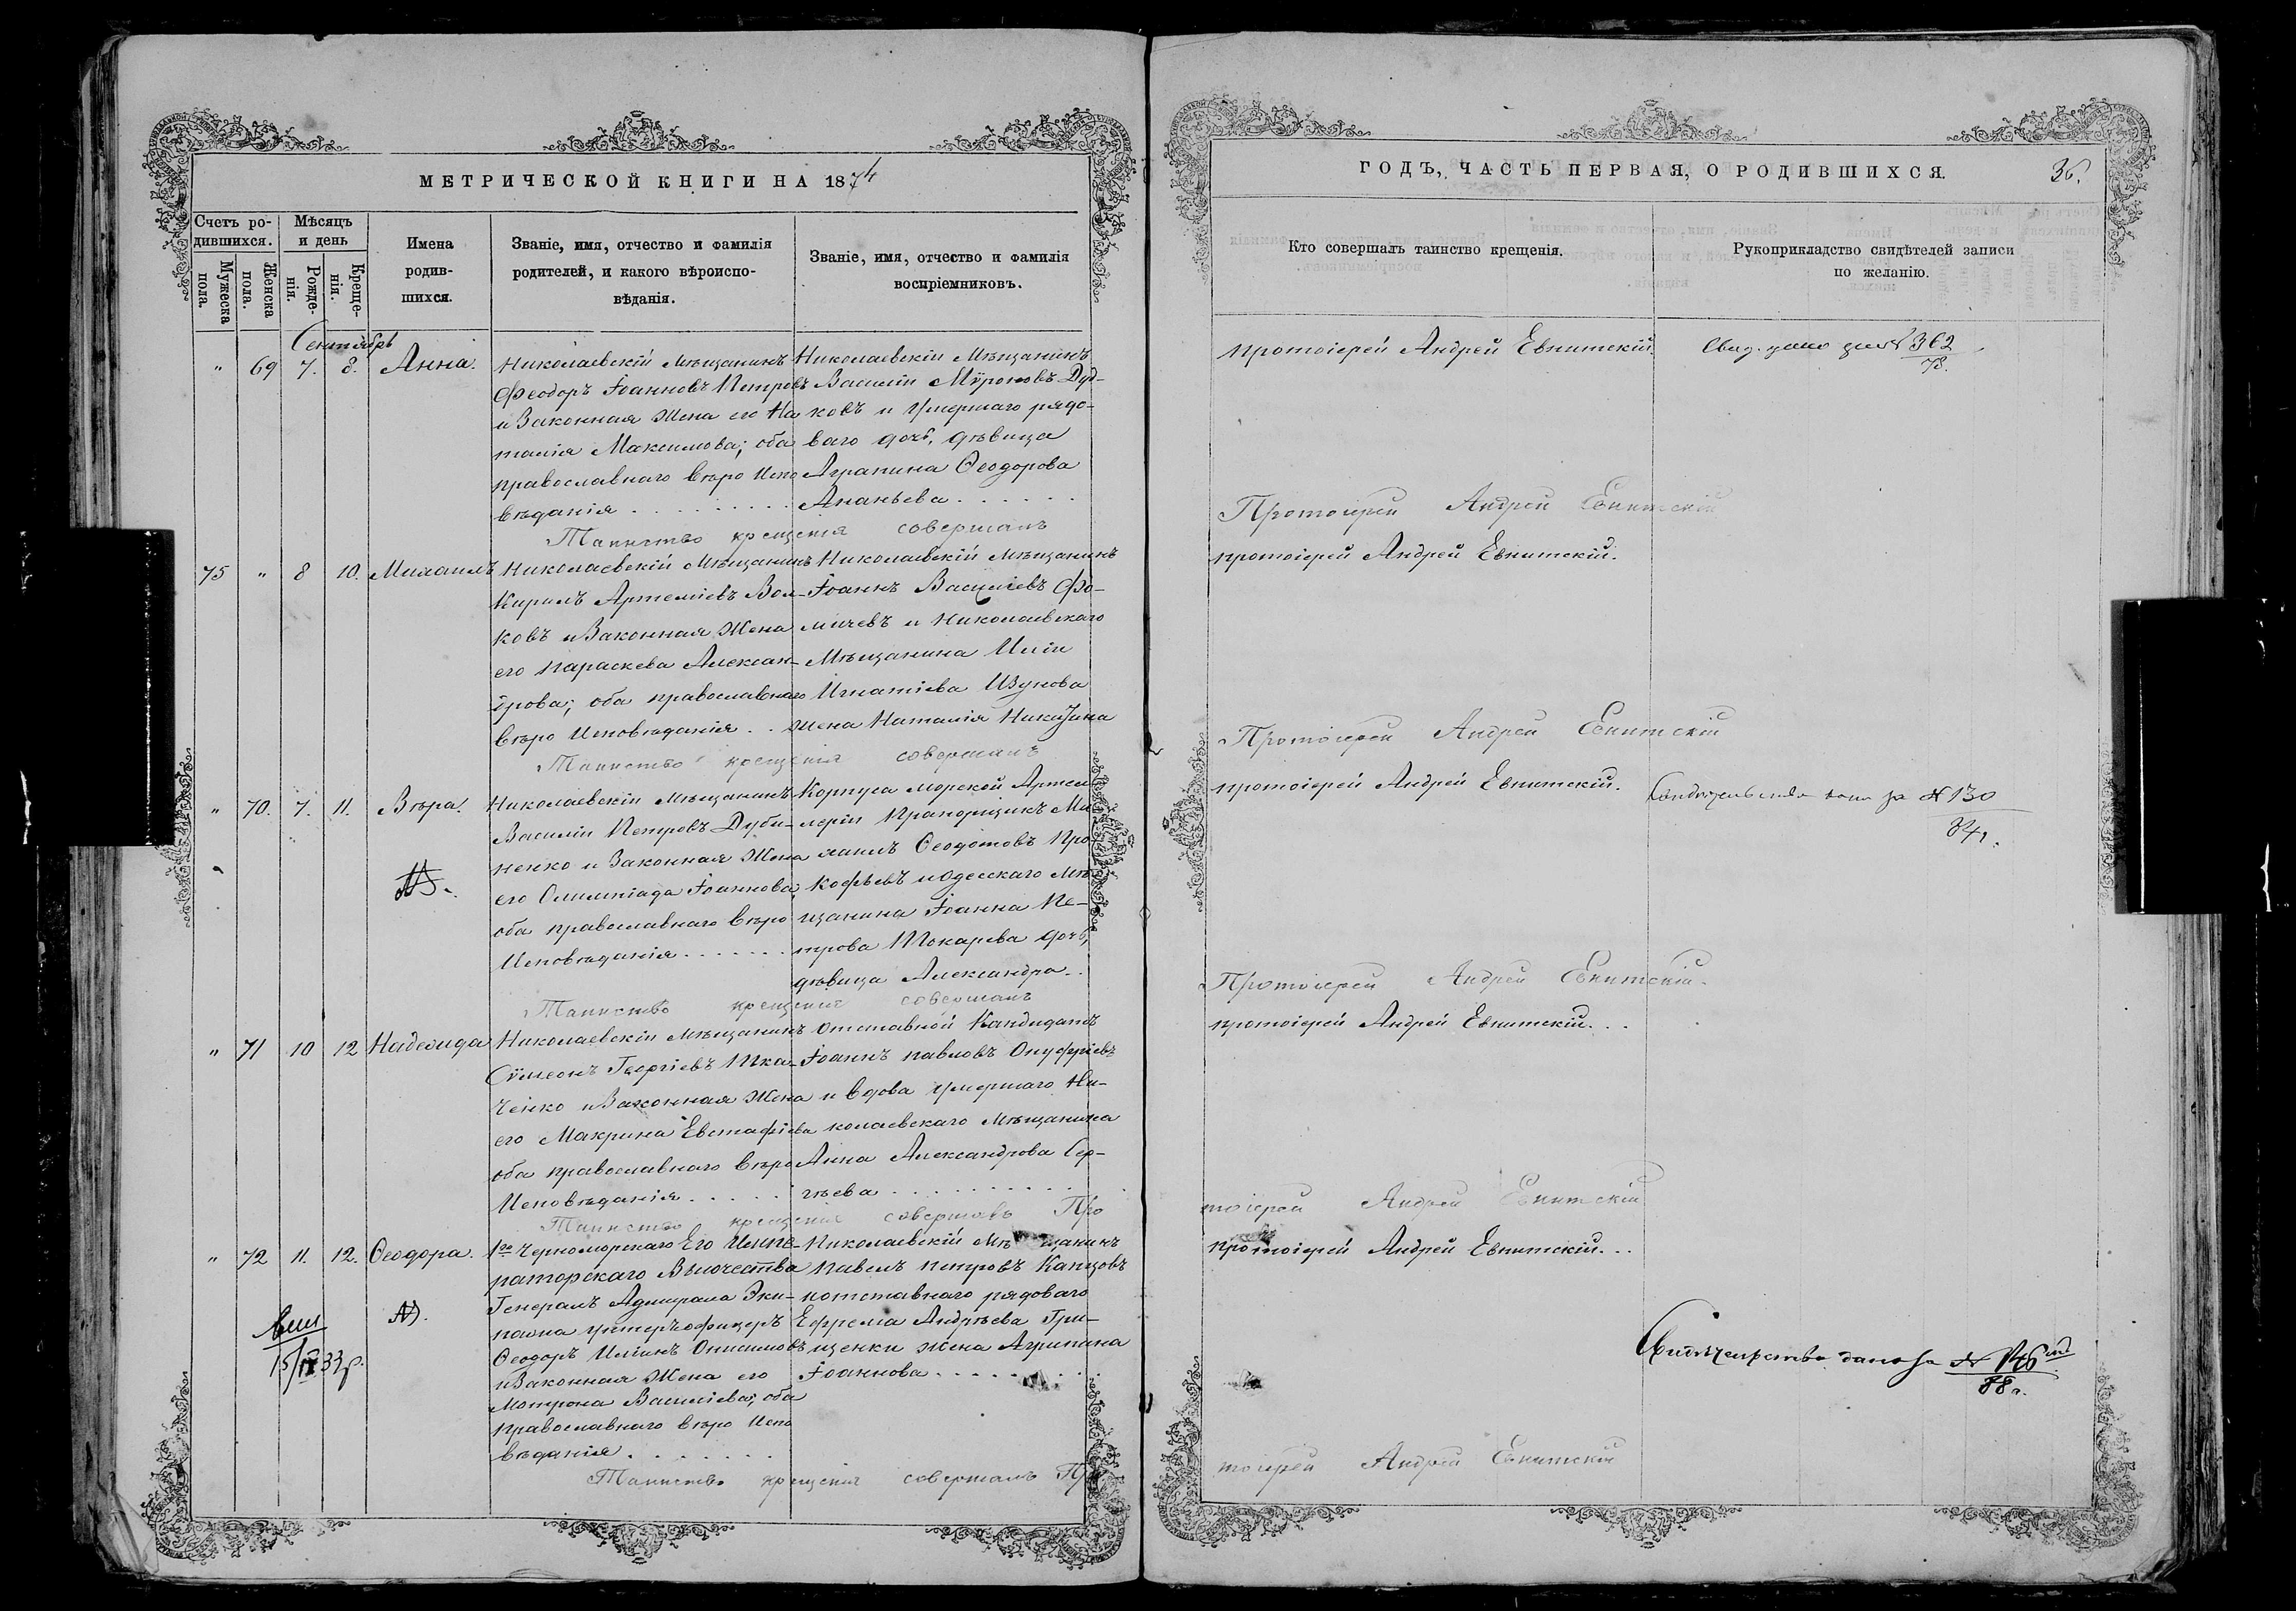 МЕТРИЧЕСКОЙ КНИГИ НА 1874
Счетъ ро-
дившихся.
Мужеска
пола.
Женска
пола.
Мѣсяцъ
и день
Рожде-
нія.
Креще-
нія.
Имена
родив-
шихся.
Званіе, имя, отчество и фамилія
родителей, и какого вѣроиспо-
вѣданія.
Званіе, имя, отчество и фамилія
воспріемниковъ.
Сентябрь
" 69 7. 8. Анна.
Николаевскій Мѣщанинъ
Феодоръ Іоанновъ Петровъ
и Законная Жена его На
талія Максимова; оба
православнаго вѣро Испо
вѣданія
Николаевскій Мѣщанинъ
Василій Мѵроновъ Дуд-
ковъ и Умершаго рядо-
ваго дочь, дѣвица
Агрипина Ѳеодорова
Ананьева
Таинство крещенія совершалъ
75 " 8 10. Михаилъ
Николаевскій Мѣщанинъ
Кирилъ Артеміевъ Вол-
ковъ и Законная Жена
его Параскева Алексан-
дрова; оба православнаго
вѣро Исповѣданія
Николаевскій Мѣщанинъ
Іоаннъ Василіевъ Фо-
мичевъ и Николаевскаго
Мѣщанина Иліи
Игнатіева Изунова
жена Наталія Никитина
Таинство крещенія совершалъ
" 70. 7. 11. Вѣра.
Николаевскій Мѣщанинъ
Василій Петровъ Дуби-
ненко и Законная Жена
его Олимпіада Іоаннова
оба православнаго вѣро
Исповѣданія
Корпуса Морской Артил
леріи Прапорщикъ Ми
хаилъ Ѳеодотовъ Про
кофьевъ и Одесскаго Мѣ
щанина Іоанна Пе-
трова Токарева дочь,
дѣвица Александра
Таинство крещенія совершалъ
" 71 10 12 Надежда
Николаевскій Мѣщанинъ
Сѵмеонъ Георгіевъ Тка-
ченко и Законная Жена
его Макрина Евстафіева
оба православнаго вѣро
Исповѣданія
Отставной Кандидатъ
Іоаннъ Павловъ Онуфріевъ
и вдова умершаго Ни-
колаевскаго Мѣщанина
Анна Александрова Сер-
гѣева
Таинство крещенія совершалъ Про
" 72 11. 12. Ѳеодора.
1го Черноморскаго Его Импе-
раторскаго Высочества
Генералъ Адмирала Эки-
пажа унтеръ офицеръ
Ѳеодоръ Иліинъ Онисимовъ
и Законная Жена его
Мотрона Василіева; оба
православнаго вѣро Испо
вѣданія
Николаевскій Мѣщанинъ
Павелъ Петровъ Капцовъ
и отставнаго рядоваго
Ефрема Андрѣева Гри-
щенки жена Агрипина
Іоаннова
Таинство крещенія совершалъ Про
ГОДЪ, ЧАСТЬ ПЕРВАЯ, О РОДИВШИХСЯ.
36.
Кто совершалъ таинство крещенія.
Рукоприкладство свидѣтелей записи
по желанію.
протоіерей Андрей Евнитскій.
Свид. дано за № 362
78.
Протоіерей Андрей Евнитскій
протоіерей Андрей Евнитскій.
Протоіерей Андрей Евнитскій
протоіерей Андрей Евнитскій.
Свидѣтельство дано за № 130
84.
Протоіерей Андрей Евнитскій.
протоіерей Андрей Евнитскій.
тоіерей Андрей Евнитскій
протоіерей Андрей Евнитскій.
Свидѣтельство дано за № 146
88 г.
тоіерей Андрей Евнитскій